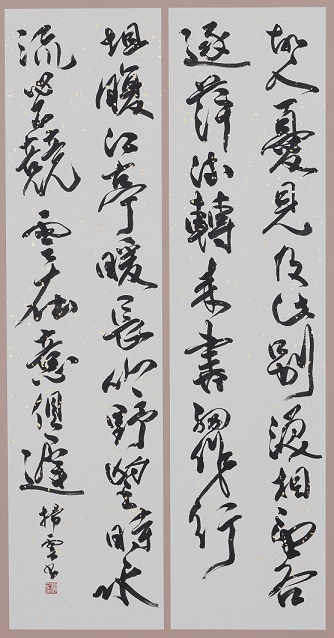 故人憂見及此別淚相望各
逐萍流轉来書細作行
坦腹江亭暖長吟野望時水
流心不競雲在意俱遲
掃雲书